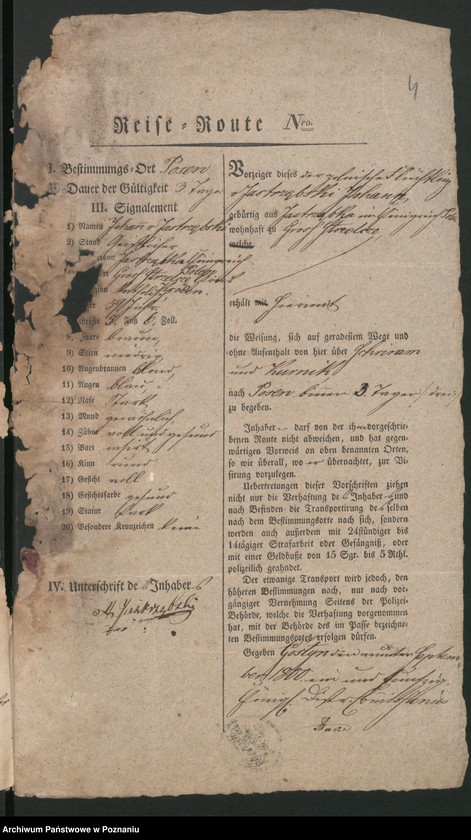 4
Reise-Route Nro.
I. Bestimmungs-Ort Posen
II. Dauer der Gültigkeit 3 Tage
III. Signalement
1) Namen Johann v Jastrzębski
2) Stand
Größe 5 Fuß 6 Zoll.
8) Haare braun
9) Stirn niedrig
10) Augenbraunen blond
11) Augen blau
12) Nase stark
13) Mund gewöhnlich
14) Zähne voll und gesund
15) Bart
16) Kinn rund
17) Gesicht voll
18) Gesichtsfarbe gesund
19) Statur stark
20) Besondere Kennzeichen keine
IV. Unterschrift des Inhabers
Vorzeiger dieses der polnische Flüchtling
v Jastrzębski Johann
gebürtig aus Jastrząbka im Königreich
wohnhaft zu
welche
erhält mit hiermit
die Weisung, sich auf geradestem Wege und
ohne Aufenthalt von hier über Schrimm
und Kurnik
nach Posen binnen 3 Tagen drei
zu begeben.
Inhaber darf von der ihm vorgeschrie-
benen Route nicht abweichen, und hat gegen-
wärtigen Vorweis an oben benannten Orten,
so wie überall, wo er übernachtet, zur Vi-
sirung vorzulegen.
Uebertretungen dieser Vorschriften ziehen
nicht nur die Verhaftung des Inhabers und
nach Befinden die Transportirung desselben
nach dem Bestimmungsorte nach sich, sondern
werden auch außerdem mit 24stündiger bis
14tägiger Strafarbeit oder Gefängniß, oder
mit einer Geldbuße von 15 Sgr. bis 5 Rthl.
polizeilich geahndet.
Der etwanige Transport wird jedoch, den
höheren Bestimmungen nach, nur nach vor-
gängiger Vernehmung Seitens der Polizei-
Behörde, welche die Verhaftung vorgenommen
hat, mit der Behörde des im Passe bezeichne-
ten Bestimmungsortes erfolgen dürfen.
Gegeben Gostyn den neunten Septem-
ber 1800 ein und fünfzig.
Archiwum Państwowe w Poznaniu